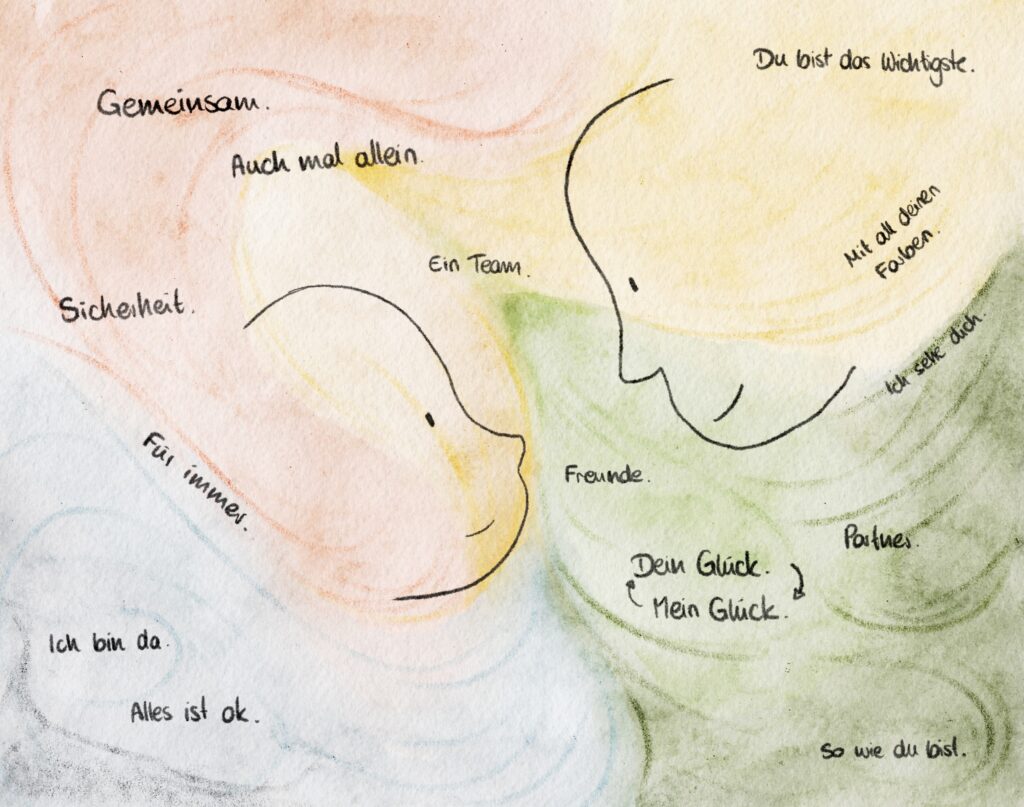 Du bist das Wichtigste.
Gemeinsam.
Auch mal allein.
Mit all deinen
Farben.
Ein Team.
Sicherheit.
Ich sehe dich.
Für immer.
Freunde.
Partner.
Dein Glück.
Mein Glück.
Ich bin da.
Alles ist ok.
So wie du bist.